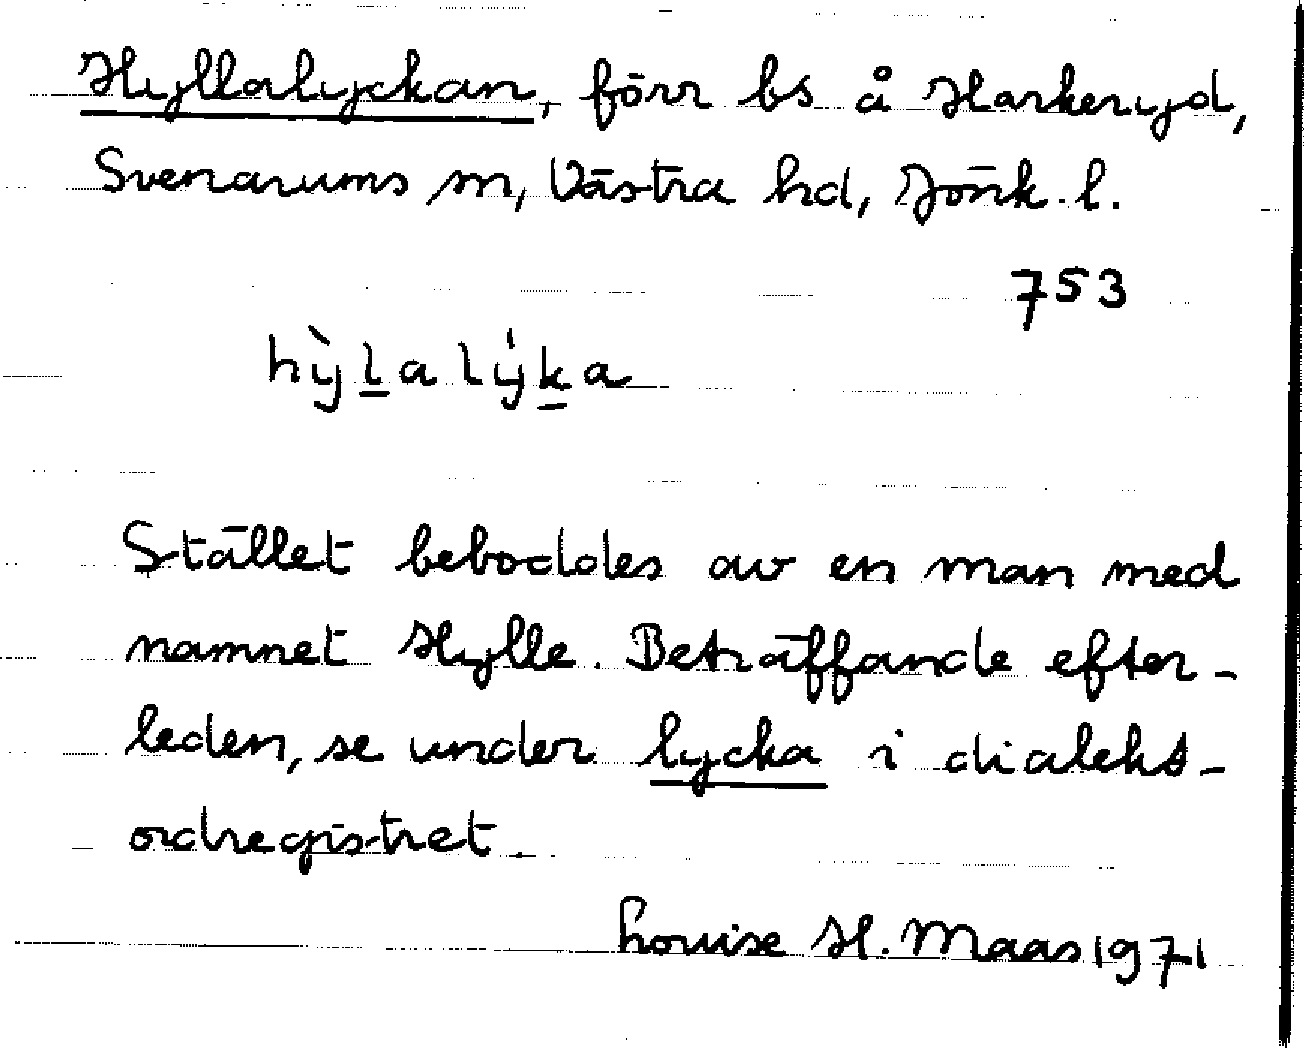 Hyllalyckan, förr bs å Harkeryd,
Svenarums sn, Västra hd, Jönk. l.
753
hỳl̲a lýk̲a
Stället beboddes av en man med
namnet Hylle. Beträffande efter-
leden, se under lycka i dialekt-
ordregistret.
Louise H. Maas 1971